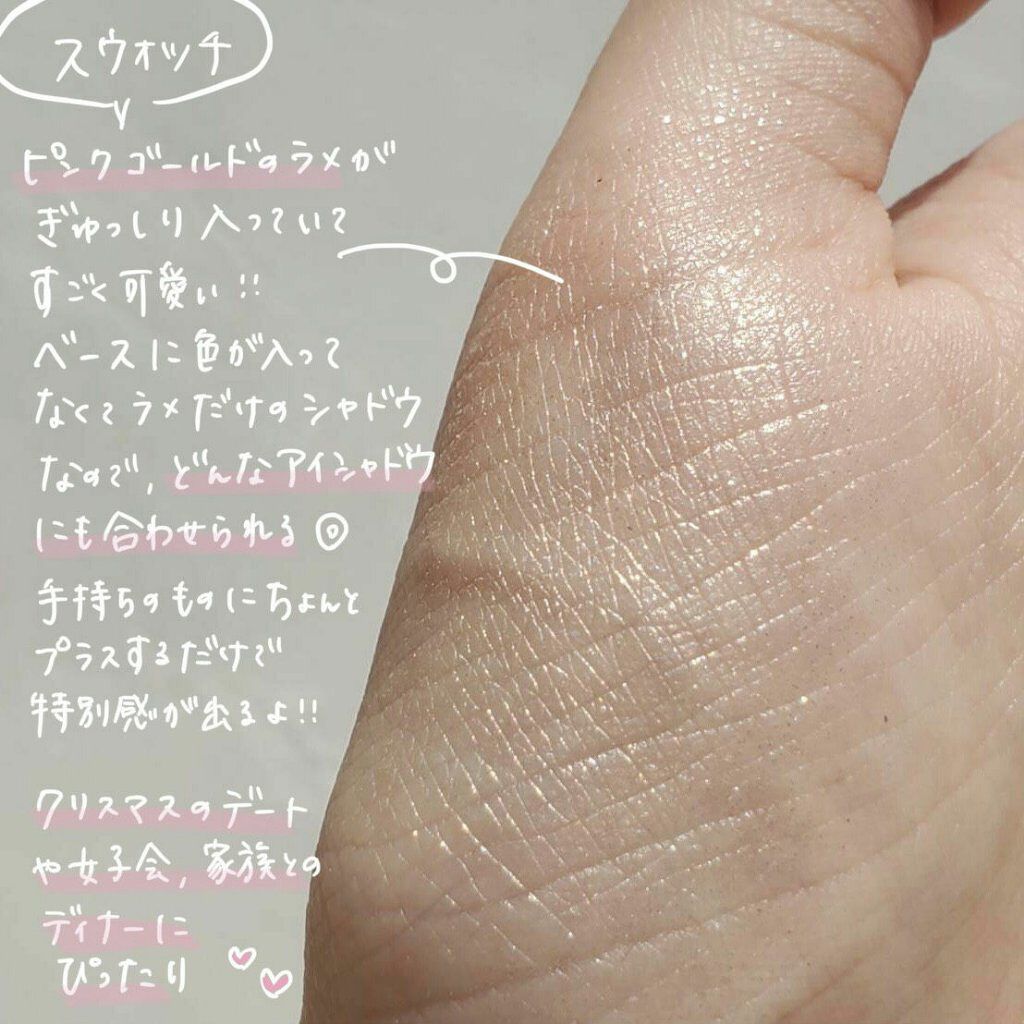 スウォッチ
ピンクゴールドのラメが
ぎゅっしり入っていて
すごく可愛い!!
ベースに色が入って
なくてラメだけのシャドウ
なので,どんなアイシャドウ
にも合わせられる◎
手持ちのものにちょんと
プラスするだけで
特別感が出るよ!!
クリスマスのデート
や女子会,家族との
ディナーに
ぴったり